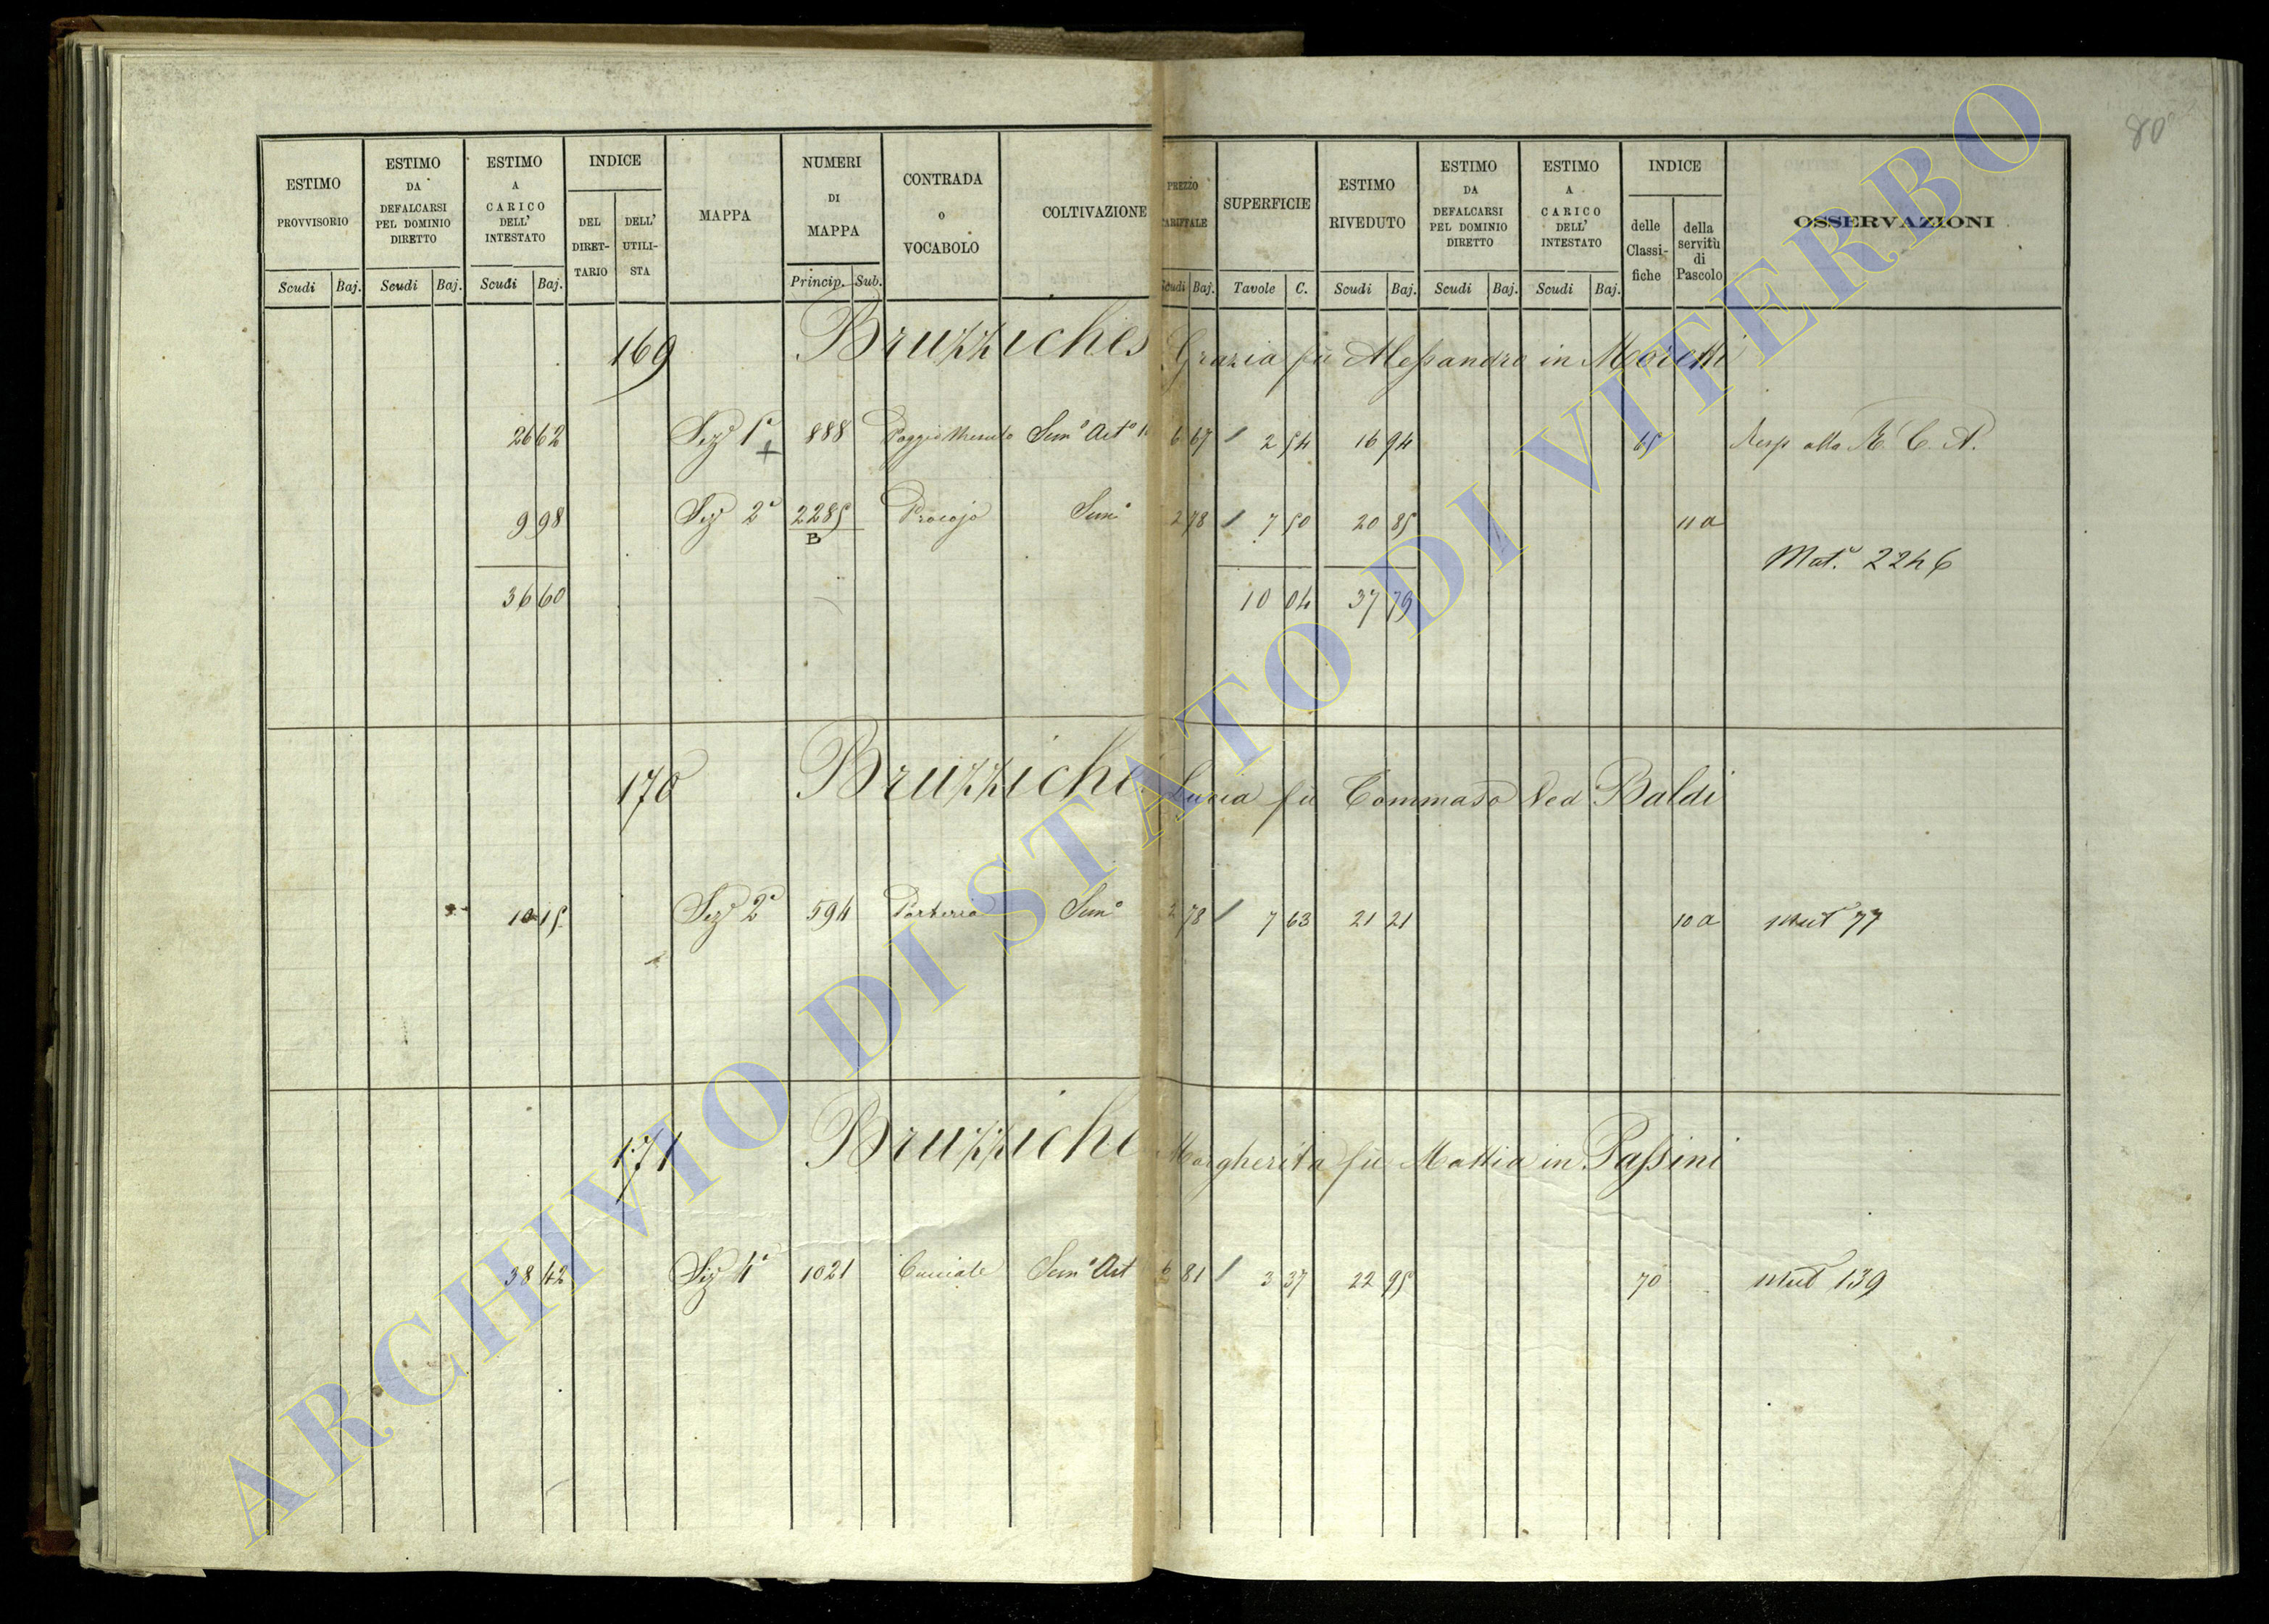 80
ESTIMO PROVVISORIO | ESTIMO DA DEFALCARSI PEL DOMINIO DIRETTO | ESTIMO A CARICO DELL' INTESTATO | INDICE | MAPPA | NUMERI DI MAPPA | CONTRADA O VOCABOLO | COLTIVAZIONE | PREZZO TARIFFALE | SUPERFICIE | ESTIMO RIVEDUTO | ESTIMO DA DEFALCARSI PEL DOMINIO DIRETTO | ESTIMO A CARICO DELL' INTESTATO | INDICE | OSSERVAZIONI
DEL DIRETTARIO | DELL' UTILISTA | delle Classifiche | della servitù di Pascolo
Scudi | Baj. | Scudi | Baj. | Scudi | Baj. | Princip. | Sub. | Scudi | Baj. | Tavole | C. | Scudi | Baj. | Scudi | Baj. | Scudi | Baj.
169 Bruzziches Grazia fù Alessandro in Moretti
26 62 | Sezº 1ª + | 888 | Poggio | Semº Artº | 6 67 / | 2 54 | 16 94 | 65 | Resp alla R. C. A.
9 98 | Sezº 2ª | 2285 B | Procojo | Semº | 2 78 / | 7 50 | 20 85 | 11 a
Mat.ª 2246
36 60 | 10 04 | 37 79
170 Bruzziche Lucia fù Tommaso Ved Baldi
10 15 | Sezº 2ª | 594 | Semº | 2 78 / | 7 63 | 21 21 | 10 a | mut 77
171 Bruzziche Margherita fù Mattia in Passini
38 42 | Sezº 4ª | 1021 | Semº Art | 6 81 / | 3 37 | 22 95 | 70 | mut 139
ARCHIVIO DI STATO DI VITERBO